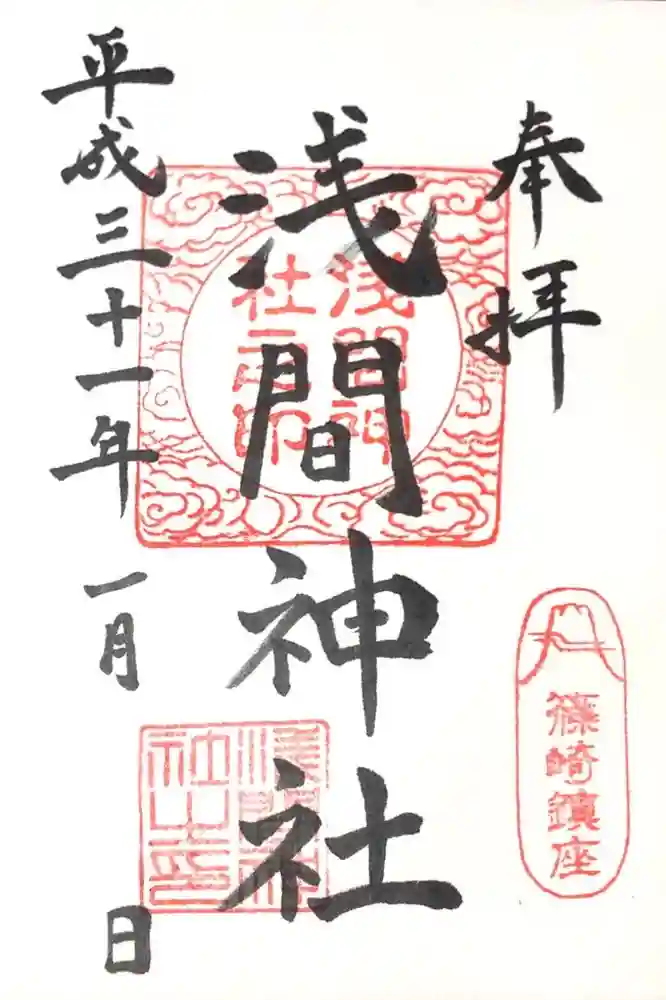 奉拝
篠崎鎮座
浅間神社
浅間神
社之印
浅間神
社之印
平成三十一年 一月 日